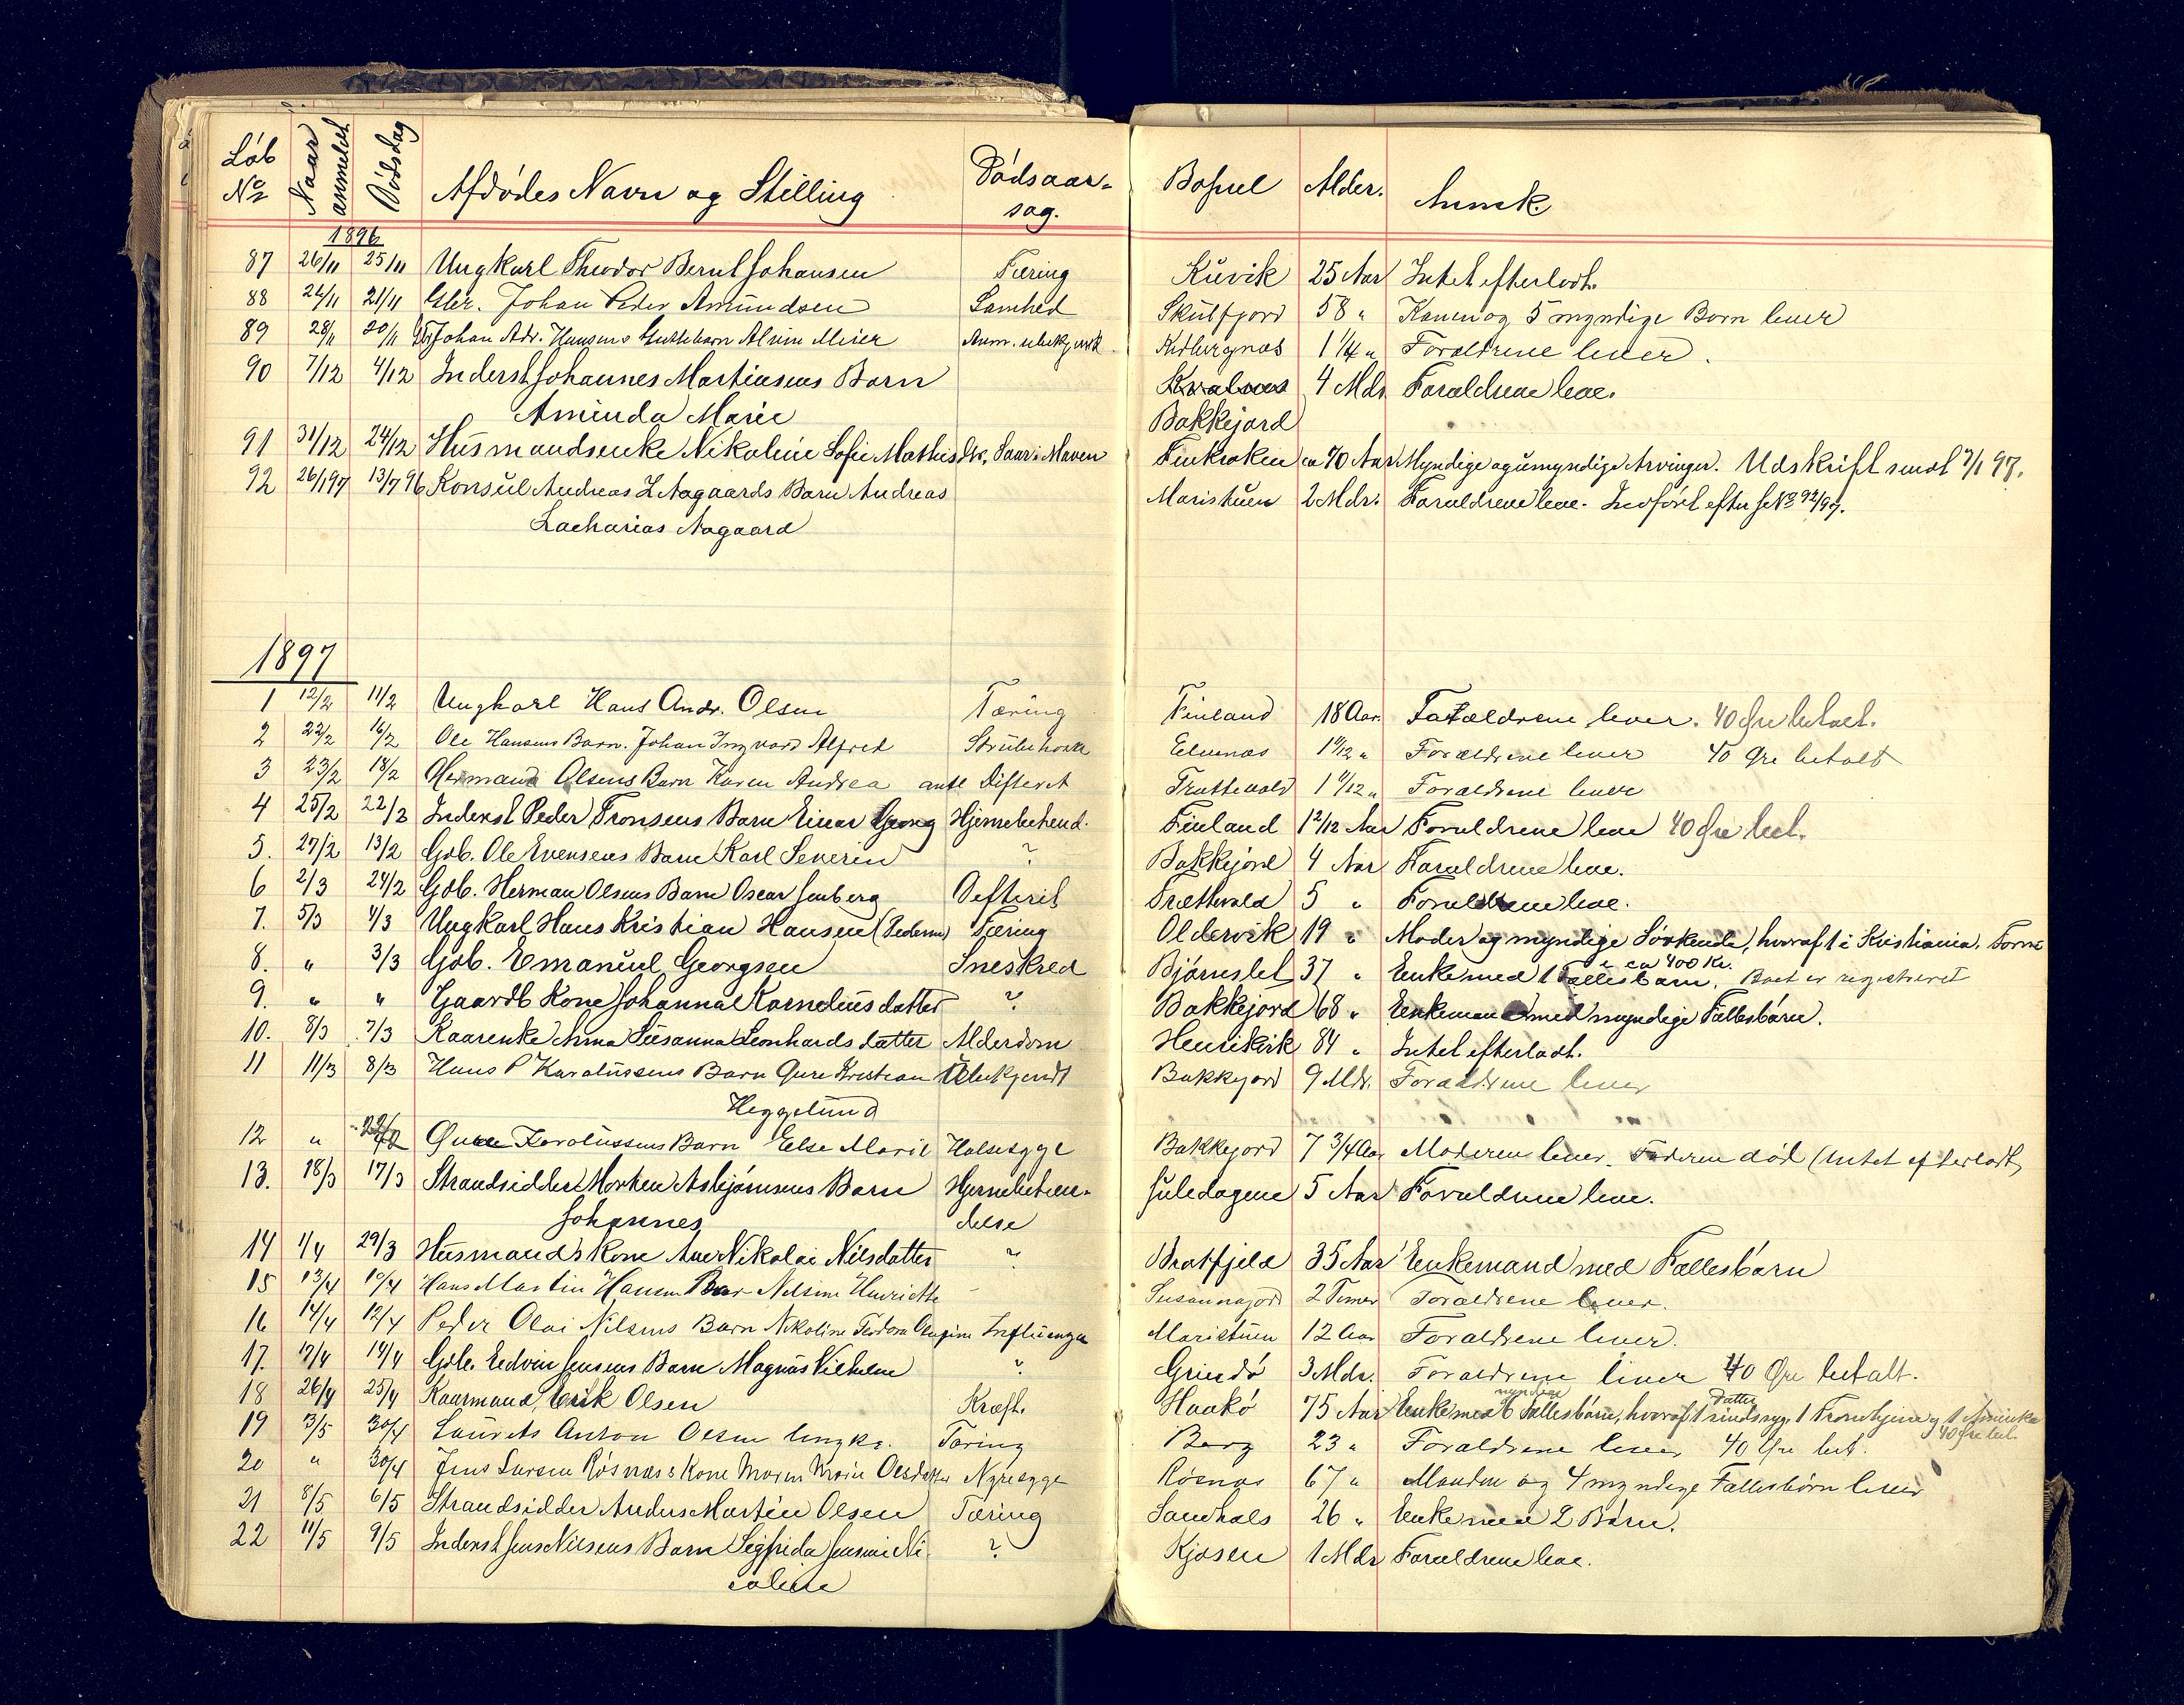 Løb No Naar anmeldet Dødsdag Afdødes Navn og Stilling Dødsaarsag. Bopæl Alder. Anmk.
1896
87 26/11 25/11 Ungkarl Theodor Bernt Johansen Tæring Kuvik 25 Aar Intet efterladt.
88 26/11 21/11 Johan Peder Amundsen Lamhed Skulsfjord 58 " Konen og 5 myndige Børn lever
89 28/11 20/11 Johan Adr. Hansens Guttebarn Alvin Meier Anm. ubekjendt 1 1/4 " Forældrene lever.
90 7/12 4/12 Inderst Johannes Martinsens Barn Kvalnes 4 Mdr. Forældrene leve.
Aminda Marie Bakkejord
91 31/12 24/12 Husmandsenke Nikoline Sofie Mathisdtr. Saar i Maven Finkroken ca 70 Aar Myndige og umyndige Arvinger. Udskrift sendt 7/1 97.
92 26/1 97 13/7 96 Konsul Andreas Z Aagaards Barn Andreas Maristuen 2 Mdr. Forældrene leve. Indført efter No 92/97.
Zacharias Aagaard
1897
1 12/2 11/2 Ungkarl Hans Andr. Olsen Tæring Finland 18 Aar. Forældrene lever. 40 Øre betalt.
2 22/2 16/2 Ole Hansens Barn. Johan Ingvard Alfred Strubehoste Eidnnes 1 11/12 " Forældrene lever 40 Øre betalt
3 23/2 18/2 Hermann Olsens Barn Karen Andrea antl Difterit Trættevold 1 1/12 " Forældrene lever
4 25/2 22/2 Inderst Peder Tronsens Barn Einar Georg Hjernebetænd. Finland 1 2/12 Aar Forældrene leve 40 Øre bet.
5. 27/2 13/2 Gdb. Ole Evensens Barn Karl Severin ? Bakkejord 4 Aar Forældrene leve.
6 2/3 24/2 Gdb. Herman Olsens Barn Oscar Jenberg Defterit Trættevold 5 " Forældrene leve.
7. 5/3 4/3 Ungkarl Hans Kristian Hansen (Pedersen) Tæring Oldervik 19 " Moder og myndige Søskende, hvoraf 1 i Kristiania. Form
e ca 400 Kr.
8. " 3/3 Gdb. Emanuel Georgsen Sneskred Bjørnslet 37 " Enke med 1 Fællesbarn. Boet er registreret
9. " " Gaardb Kone Johanna Korneliusdatter ? Bakkejord 68 " Enkemand med myndige Fællesbørn.
10. 8/3 7/3 Kaarenke Anna Susanna Leonhardsdatter Alderdom Henrikvik 84 " Intet efterladt.
11 11/3 8/3 Hans P Karolussens Barn Gure Kristian Ubekjendt Bakkejord 9 Mdr. Forældrene lever
Heggelund
12 " Karolussens Barn Else Marie Halssyge Bakkejord 7 3/4 Aar Moderen lever. Faderen død (Intet efterladt)
13. 18/3 17/3 Strandsidder Morten Asbjørnsens Barn Hjernebetæn- Juledagene 5 Aar Forældrene leve.
Johannes delse
14 1/4 29/3 Husmands Kone Ane Nikolai Nilsdatter ? Bratfjeld 35 Aar Enkemand med Fællesbørn
15 13/4 10/4 Hans Martin Hansen Barn Nilsine Henriette Susannajord 2 Timer Forældrene lever.
16 14/4 12/4 Peder Olai Nilsens Barn Nikoline Teodora Olugine Influenza Maristuen 12 Aar Forældrene lever.
17. 17/4 14/4 Gdb. Edvin Jensens Barn Magnus Vilhelm ? Grindø 3 Mdr. Forældrene lever 40 Øre betalt.
18 26/4 25/4 Kaarmand Erik Olsen Kræft. Haakø 75 Aar Enke med 6 myndige Fællesbørn, hvoraf 1 Datter sindssyg. 1 Trondhjem og 1 Amerika
40 Øre bet.
19 3/5 30/4 Laurits Anton Olsen Ungkr. Tæring Berg 23 " Forældrene lever 40 Øre bet.
20 " 30/4 Jens Larsen Røsnæs's Kone Maren Marie Olsdatter Nyresyge Røsnæs 67 " Manden og 4 myndige Fællesbørn lever
21 8/5 6/5 Strandsidder Anders Martin Olsen Tæring Sandhals 26 " Enke med 2 Børn.
22 11/5 9/5 Inderst Jens Nilsens Barn Sigfrida Jensine Ni- ? Kjosen 1 Mdr Forældrene leve.
coline